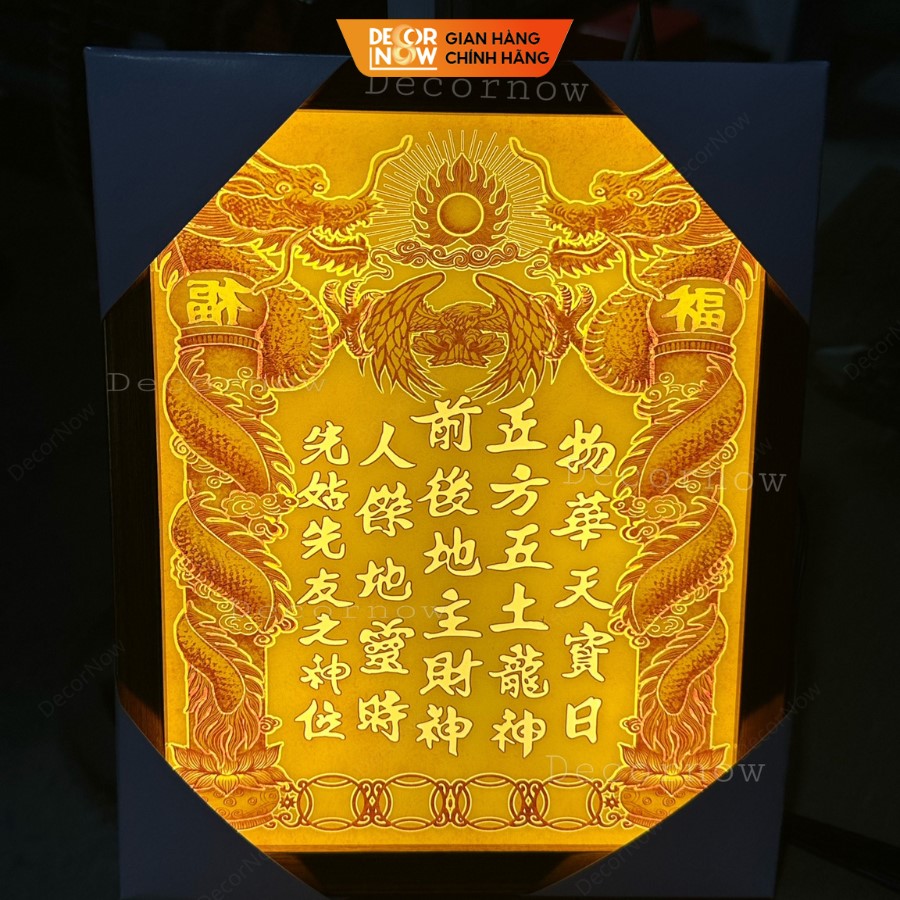 DECOR NOW
GIAN HÀNG
CHÍNH HÃNG
Decornow
福
福
物華天寳日
五方五土龍神
前後地主財神
人傑地靈時
先姑先友之神位
Decornow
Decornow
Decornow
Decornow
DecorNow
DecorNow
DecorNow
DecorNow
DecorNow
DecorNow